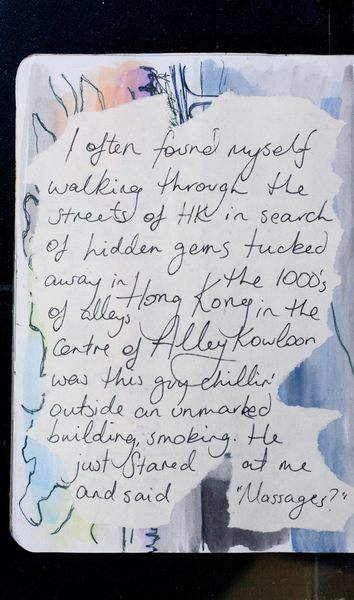 I often found myself
walking through the
streets of HK in search
of hidden gems tucked
away in the 1000's
of alleys Hong Kong in the
centre of Alley Kowloon
was this guy chillin'
outside an unmarked
building, smoking. He
just stared at me
and said "Massages?"